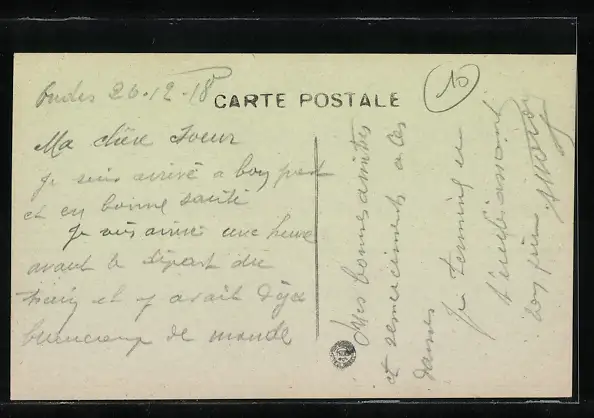 Ondes 26-12-18
CARTE POSTALE
10
Ma chère soeur
Je suis arrivé a bon port
et en bonne santé
Je suis arrivé une heure
avant le départ du
train et y avait déja
beaucoup de monde
Mes bonnes amitiés
et remerciements a ces
dames
Je termine en
t'embrassant
ton frère